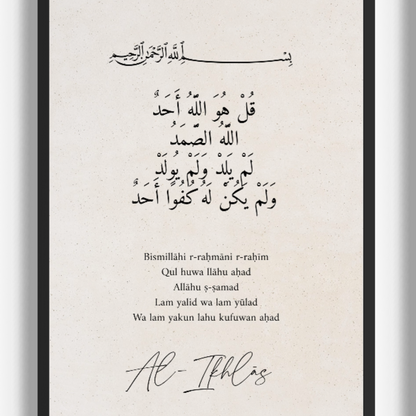 بِسْمِ ٱللَّهِ ٱلرَّحْمَٰنِ ٱلرَّحِيمِ
قُلْ هُوَ اللَّهُ أَحَدٌ
اللَّهُ الصَّمَدُ
لَمْ يَلِدْ وَلَمْ يُولَدْ
وَلَمْ يَكُنْ لَهُ كُفُوًا أَحَدٌ
Bismillāhi r-raḥmāni r-raḥīm
Qul huwa llāhu aḥad
Allāhu ṣ-ṣamad
Lam yalid wa lam yūlad
Wa lam yakun lahu kufuwan aḥad
Al-Ikhlās